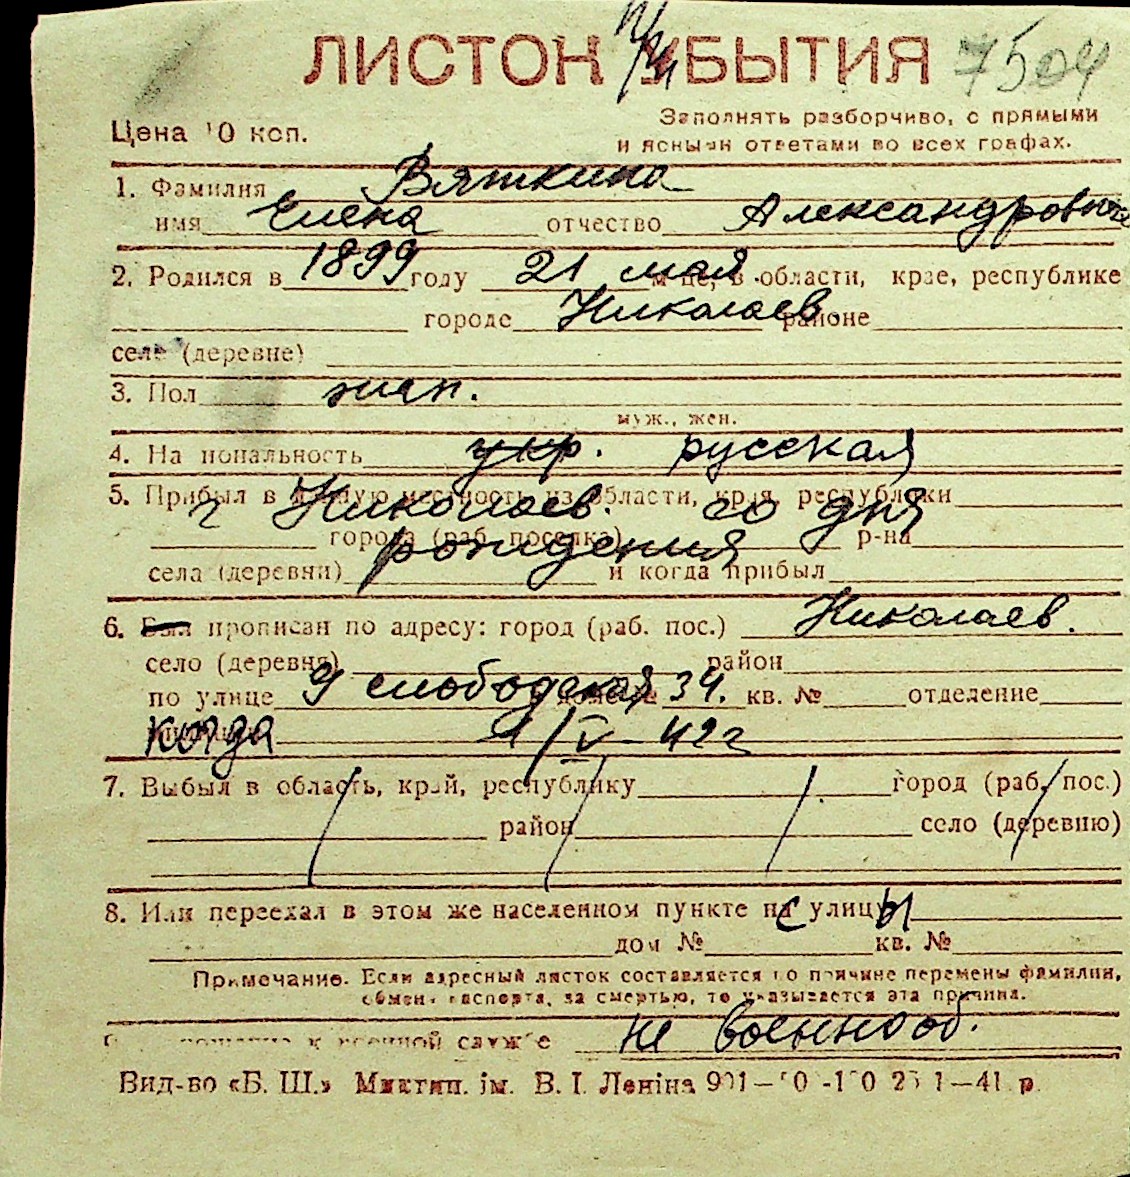 ЛИСТОК ПРИБЫТИЯ 7504
Цена 10 коп.
Заполнять разборчиво, с прямыми
и ясными ответами во всех графах.
1. Фамилия Вяткина
имя Елена отчество Александровна
2. Родился в 1899 году 21 мая м-це, в области, крае, республике
городе Николаев районе
селе (деревне)
3. Пол жен.
муж., жен.
4. Национальность укр. русская
5. Прибыл в данную местность из области, края, республики
г Николаев. со дня
города (раб. поселка) р-на
рождения
села (деревни) и когда прибыл
6. Был прописан по адресу: город (раб. пос.) Николаев.
село (деревня) район
по улице 9 слободская дом № 34. кв. № отделение
когда 1/V-42г
7. Выбыл в область, край, республику город (раб. пос.)
район село (деревню)
8. Или переехал в этом же населенном пункте с улицы
дом № кв. №
Примечание. Если адресный листок составляется по причине перемены фамилии,
обмена паспорта, за смертью, то указывается эта причина.
к военной службе не военнооб.
Вид-во «Б. Ш.» Миктип. ім. В. І. Леніна 1—41 р.